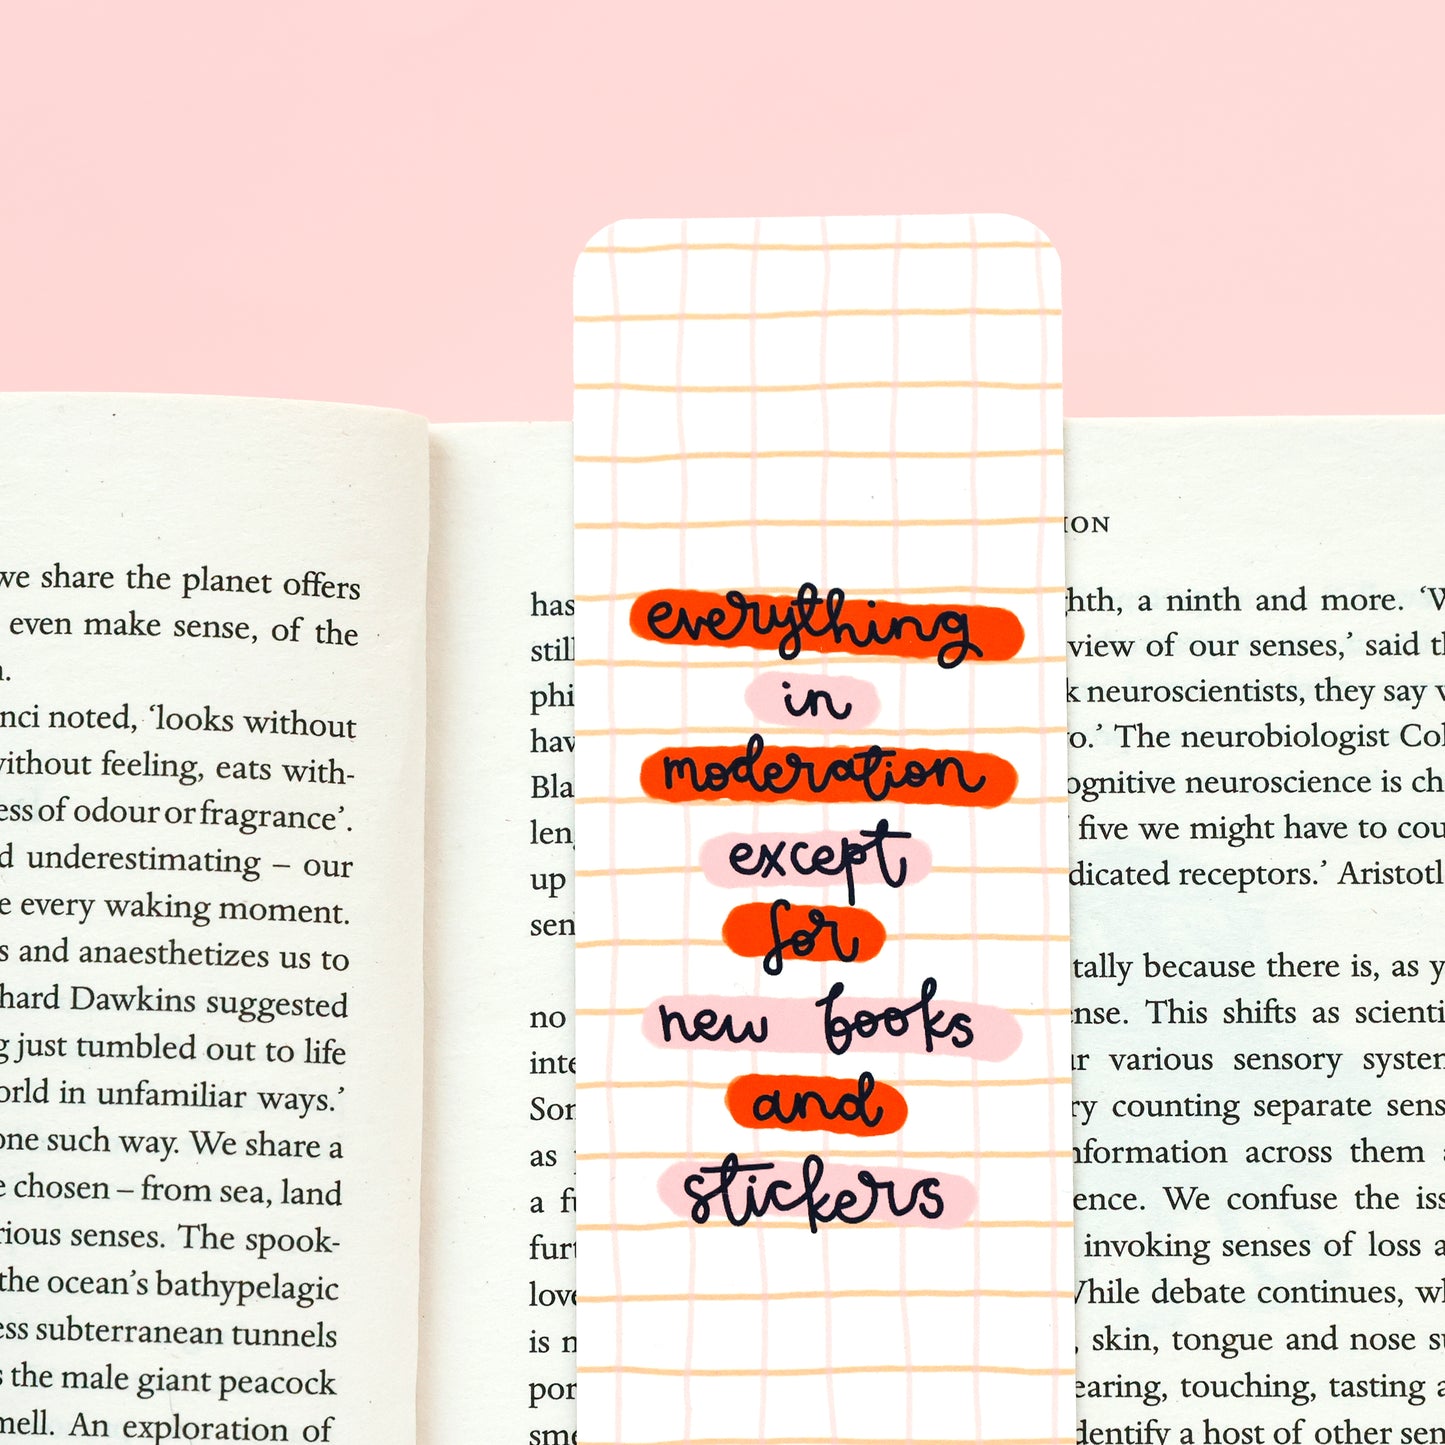 we share the planet offers
even make sense, of the
nci noted, ‘looks without
without feeling, eats with-
ess of odour or fragrance’.
underestimating – our
every waking moment.
and anaesthetizes us to
hard Dawkins suggested
just tumbled out to life
orld in unfamiliar ways.’
one such way. We share a
chosen – from sea, land
rious senses. The spook-
the ocean’s bathypelagic
ess subterranean tunnels
the male giant peacock
mell. An exploration of
everything
in
moderation
except
for
new books
and
stickers
ION
has
still
phi
hav
Bla
len
up
sen
no
inte
Son
as
a fu
furt
love
is n
por
sme
hth, a ninth and more. ‘W
view of our senses,’ said th
k neuroscientists, they say
o.’ The neurobiologist Col
ognitive neuroscience is ch
five we might have to cou
dicated receptors.’ Aristotl
tally because there is, as y
nse. This shifts as scienti
ur various sensory system
ry counting separate sens
nformation across them
ence. We confuse the iss
invoking senses of loss a
While debate continues, wh
, skin, tongue and nose su
earing, touching, tasting a
dentify a host of other sen